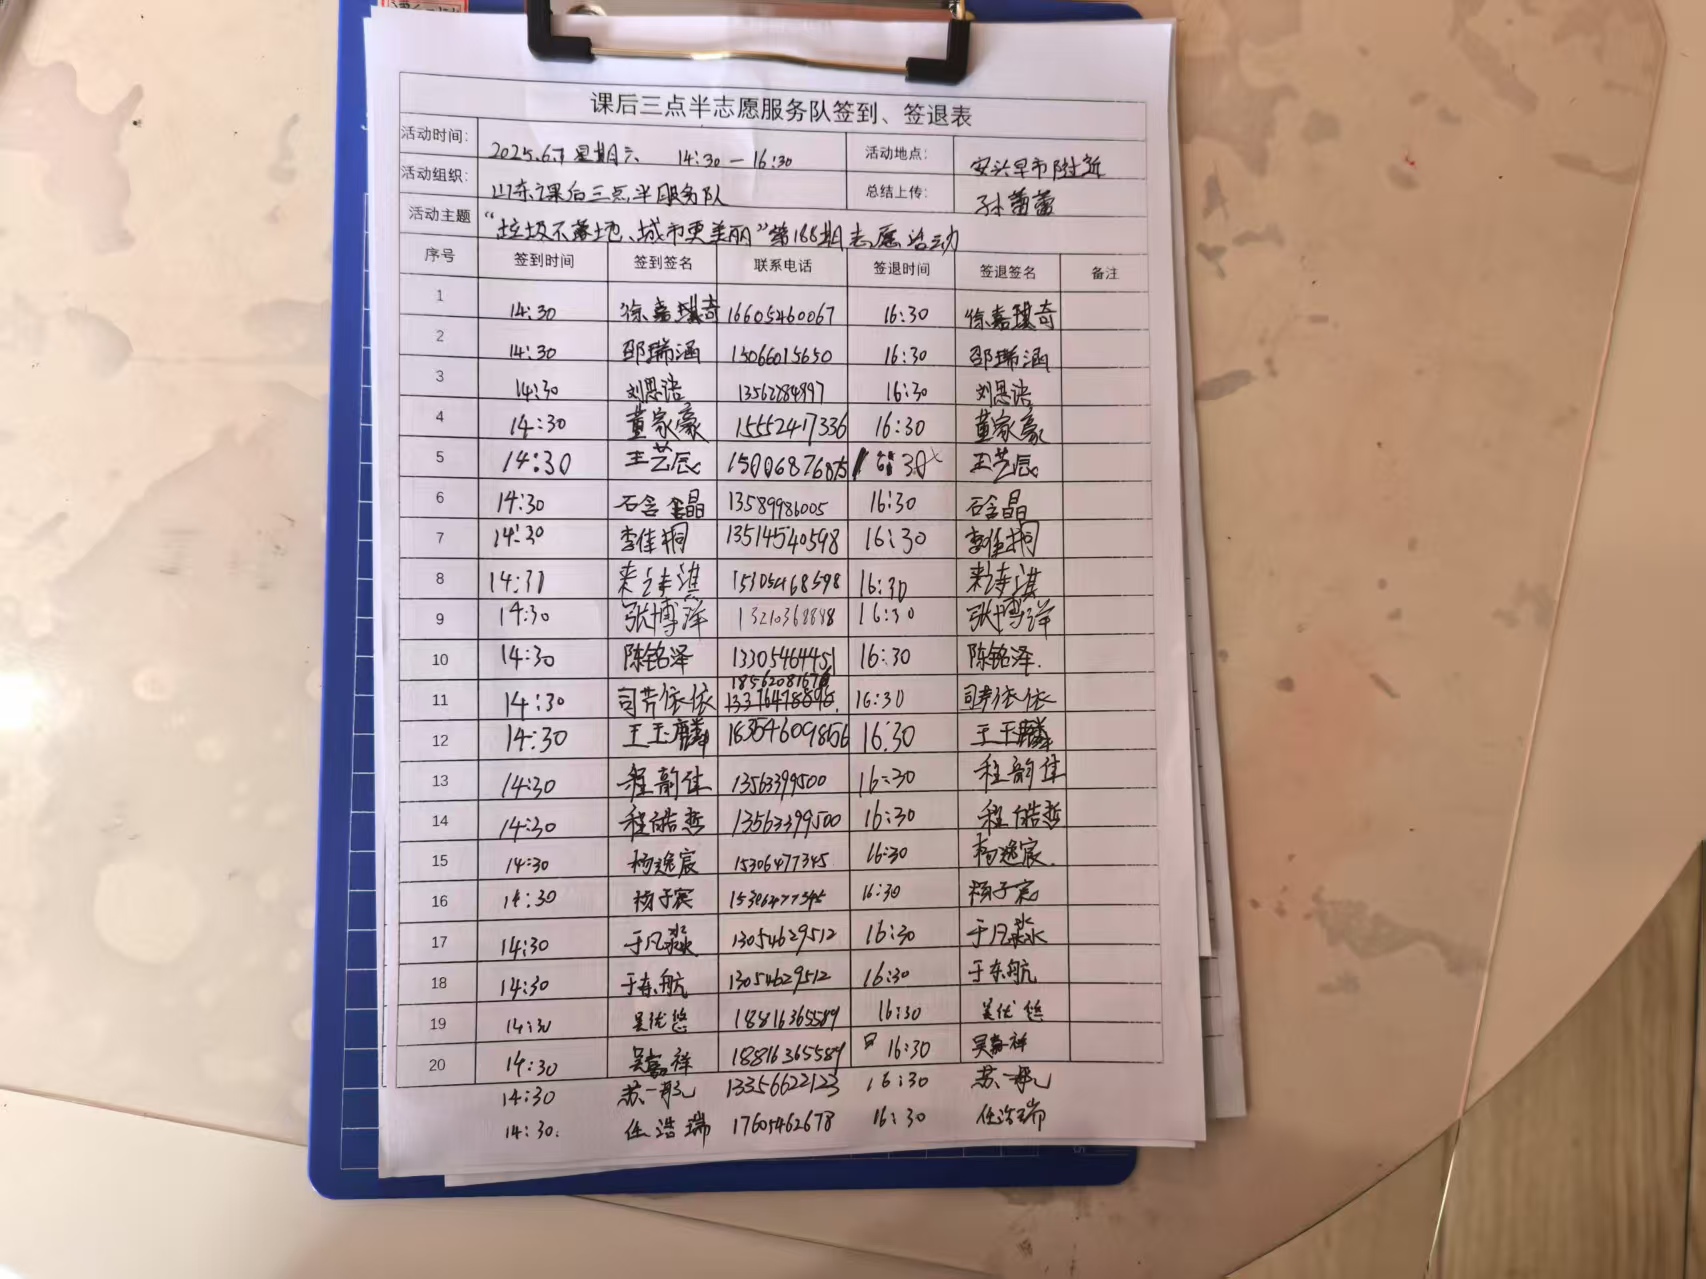 课后三点半志愿服务队签到、签退表
活动时间: 2025.6.7 星期六 14:30—16:30 活动地点: 安兴早市附近
活动组织: 山东课后三点半服务队 总结上传: 孙蕾蕾
活动主题 “垃圾不落地、城市更美丽”第166期志愿活动
序号 签到时间 签到签名 联系电话 签退时间 签退签名 备注
1 14:30 徐嘉琪奇 16605460067 16:30 徐嘉琪奇
2 14:30 邵瑞涵 15066015650 16:30 邵瑞涵
3 14:30 刘思语 13562284897 16:30 刘思语
4 14:30 董家豪 15552417336 16:30 董家豪
5 14:30 王艺辰 15006876875 16:30 王艺辰
6 14:30 石含晶 13589986005 16:30 石含晶
7 14:30 李佳桐 13514540598 16:30 李佳桐
8 14:31 来诗淇 15305468598 16:30 来诗淇
9 14:30 张博洋 13210368888 16:30 张博洋
10 14:30 陈铭泽 13305464451 16:30 陈铭泽.
11 14:30 司芳依依 16:30 司芳依依
12 14:30 王玉麟 18354609856 16:30 王玉麟
13 14:30 程韵佳 13563399500 16:30 程韵佳
14 14:30 程皓哲 13563399500 16:30 程皓哲
15 14:30 杨逸宸 15306477345 16:30 杨逸宸.
16 14:30 杨子宸 15306477345 16:30 杨子宸
17 14:30 于凡淼 13054629512 16:30 于凡淼
18 14:30 于东航 13054629512 16:30 于东航
19 14:30 吴优悠 18816365589 16:30 吴优悠
20 14:30 吴嘉祥 18816365589 16:30 吴嘉祥
14:30 苏一帆 13356622123 16:30 苏一帆
14:30. 任浩瑞 17605462678 16:30 任浩瑞